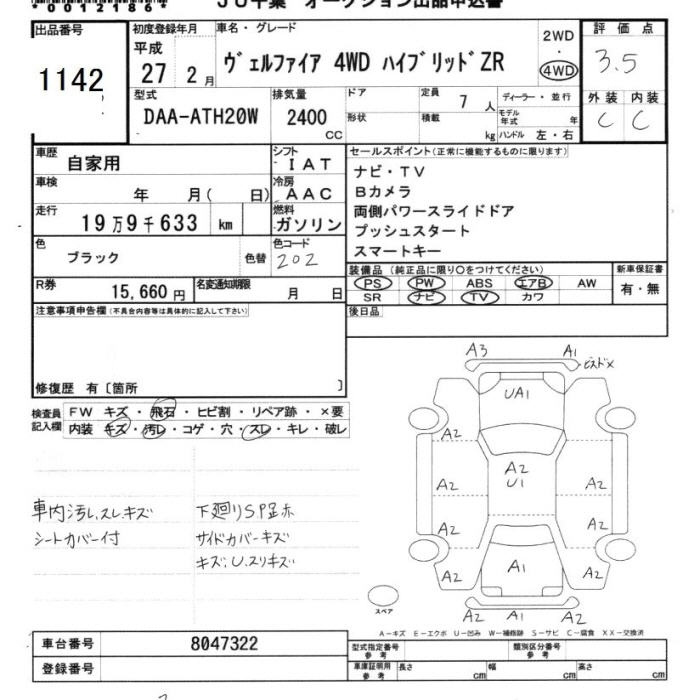 *00121864*
JU千葉 オークション出品申込書
出品番号 初度登録年月 車名・グレード 評価点
1142 平成 27 2月 ヴェルファイア 4WD ハイブリッドZR 2WD ・ 4WD 3.5
型式 排気量 ドア 定員 ディーラー・並行 外装 内装
DAA-ATH20W 2400 CC 7人 モデル年式 年 C C
形状 積載 kg ハンドル 左・右
車歴 自家用 シフト IAT セールスポイント(正常に機能するものに限ります)
車検 年 月( 日) 冷房 AAC ナビ・TV
Bカメラ
走行 19万9千633 km 燃料 ガソリン 両側パワースライドドア
色 ブラック 色替 色コード 202 プッシュスタート
スマートキー
装備品(純正品に限り○をつけてください) 新車保証書
R券 15,660円 名変通知期限 月 日 PS PW ABS エアB AW 有・無
SR ナビ TV カワ
注意事項申告欄(不具合内容等は具体的に記入して下さい) 後日品
修復歴 有〔箇所 〕
検査員記入欄 FW キズ・飛石・ヒビ割・リペア跡・×要
内装 キズ・汚レ・コゲ・穴・スレ・キレ・破レ
車内汚し、スレキズ 下廻りSP足赤
シートカバー付 サイドカバーキズ
キズ:U.スリキズ
A3 A1 ビスドメ
UA1
A2 A2
A2
U1
A2 A2
A2 A2
A2 A1 A2
スペア A2 A1
A-キズ E-エクボ U-凹み W-補修跡 S-サビ C-腐食 XX-交換済
車台番号 8047322 型式指定番号 参考 類別区分番号 参考
登録番号 車庫証明用 参考 長さ cm 幅 cm 高さ cm